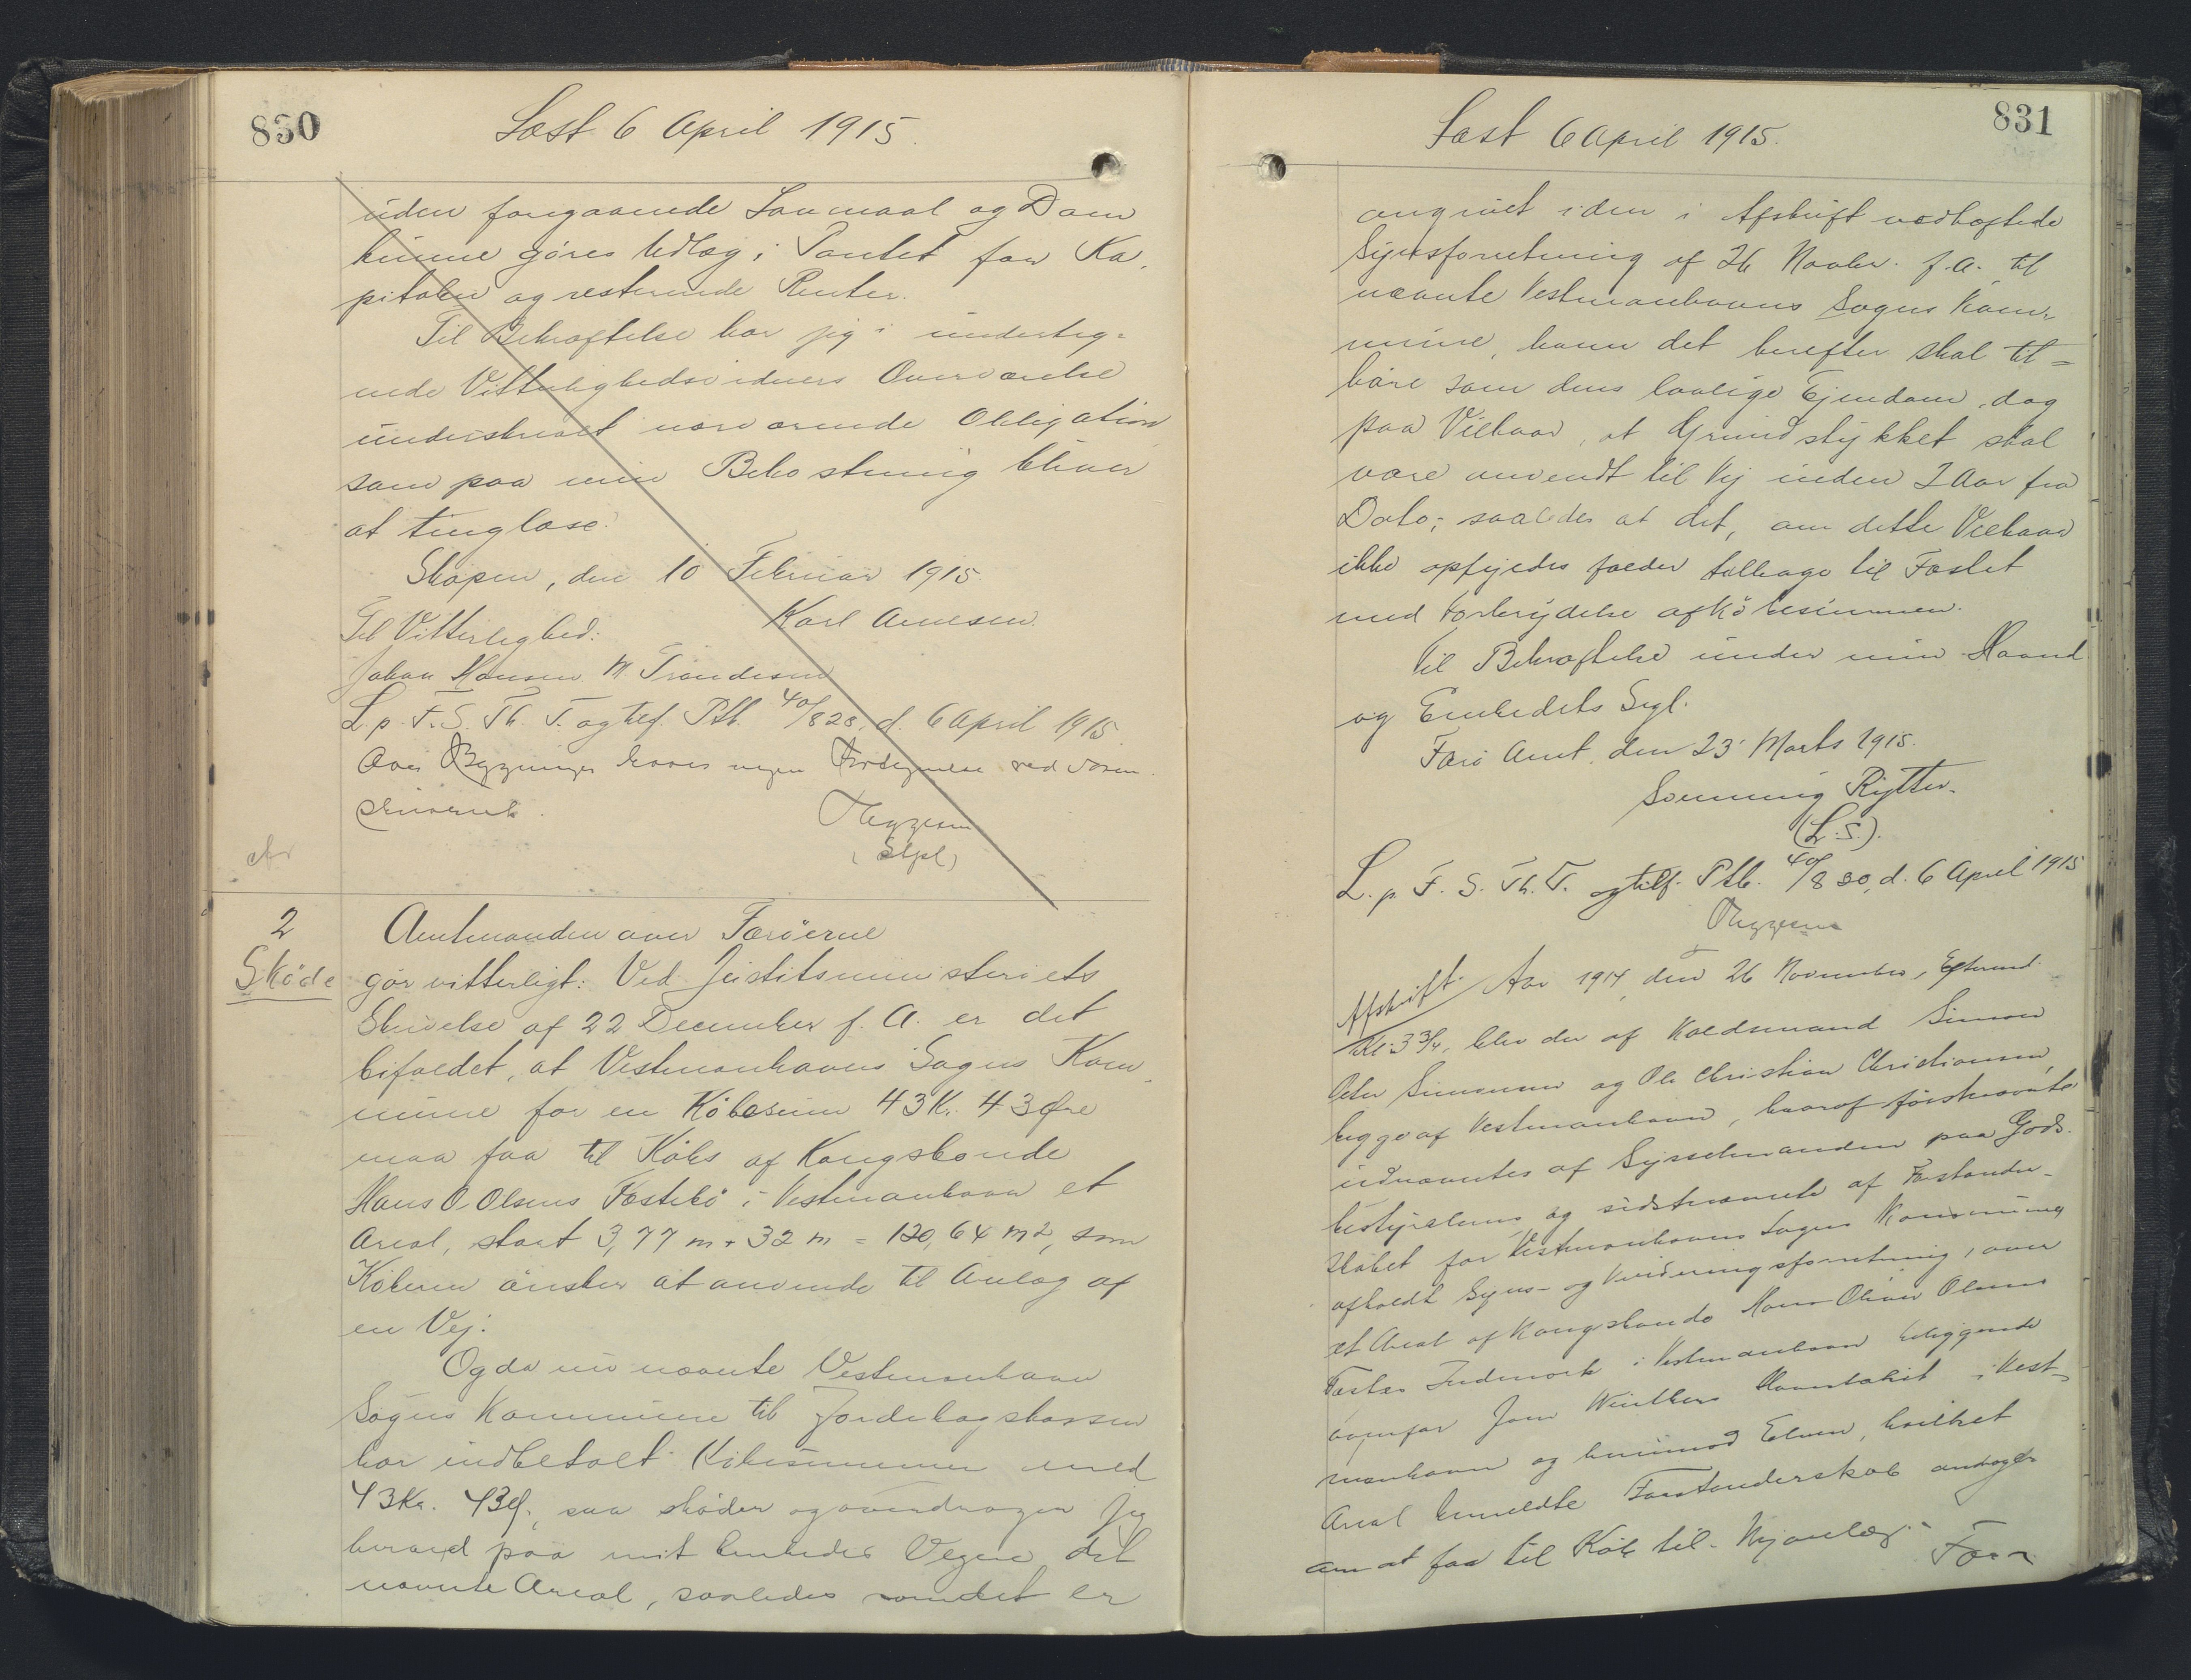 830
Læst 6 April 1915.
uden foregaaende Lovmaal og Dom
kunne göres Udlæg i Pantet for Ka-
pitalen og resterende Renter.
Til Bekræftelse har jeg i underteg-
nede Vitterlighedsvidners Overværelse
underskrevet nærværende Obligation
som paa min Bekostning bliver
at tinglæse.
Skopen, den 10 Februar 1915.
Karl Arnesen.
Til Vitterlighed:
Johan Hansen M Trondesen
L. p. F. S. Th. T. og tilf. Ptb. 40/828, d. 6 April 1915.
Over Bygninger haves ingen Fortegnelse ved dette
2
Skøde
Amtmanden over Færöerne
gör vitterligt: Ved Justitsministeriets
Skrivelse af 22 December f. A. er det
bifaldet, at Vestmanhavns Sogns Kom-
mune for en Köbesum 43 Kr. 43 Øre
maa faa til Köbs af Kongsbonde
Hans O. Olsens Fæstebö i Vestmanhavn et
Areal, stort 3,77 m × 32 m = 120,64 m2, som
Köberen önsker at anvende til Anlæg af
en Vej.
Og da nu nævnte Vestmanhavn
Sogns Kommune til Jordebogskassen
har indbetalt Köbesummen med
43 Kr. 43 Ø., saa sköder og overdrager jeg
herved paa mit Embedes Vegne det
nævnte Areal, saaledes som det er
831
Læst 6 April 1915.
angivet i den i Afskrift vedhæftede
Synsforretning af 26 Novbr. f. A. til
nævnte Vestmanhavns Sogns Kom-
mune, hvem det herefter skal til-
höre som dens lovlige Ejendom, dog
paa Vilkaar, at Grundstykket skal
være anvendt til Vej inden 2 Aar fra
Dato, saaledes at det, om dette Vilkaar
ikke opfyldes falder tilbage til Fæstet
med Fortrydelse af Köbesummen.
Til Bekræftelse under min Haand
og Embedets Segl.
Færö Amt, den 23' Marts 1915.
Svenning Rytter.
(L.S.).
L. p. F. S. Th. T. og tilf. Ptb. 40/830, d. 6 April 1915
Afskrift. Aar 1914, den 26 November, Eftermd.
Kl. 3 3/4, blev der af Koldsmand Simon
Peter Simonsen og Ole Christian Christiansen,
begge af Vestmanhavn, hvoraf förstnævnte
udnævntes af Sysselmanden paa Gods-
bestyrelsens og sidstnævnte af Forstander-
skabet for Vestmanhavns Sogns Kommune
afholdt Syns- og Vurderingsforretning, over
et Areal af Kongsbonde Hans Oliver Olsens
Fæstes Indmark i Vestmanhavn beliggende
ovenfor Joen Winthers i Vest-
manhavn og henimod Elven, hvilket
Areal bemeldte Forstanderskab andrager
om at faa til Köb til Vejanlæg. For-